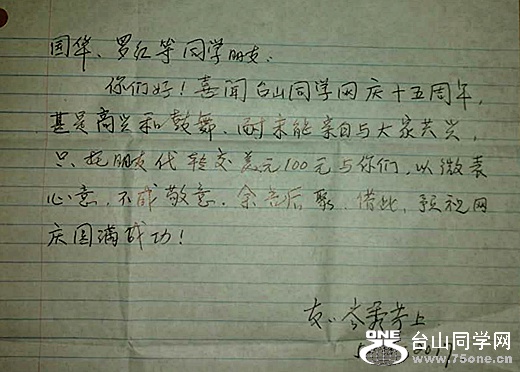 国华、罗红等同学朋友:
你们好!喜闻台山同学网庆十五周年,
甚是高兴和鼓舞、耐未能亲自与大家共兴,
只托朋友代转交美元100元与你们,以微表
心意,不成敬意.余言后聚.借此,预祝网
庆园满成功!
友:
上
2017
ONE
台山同学网
www.75one.cn